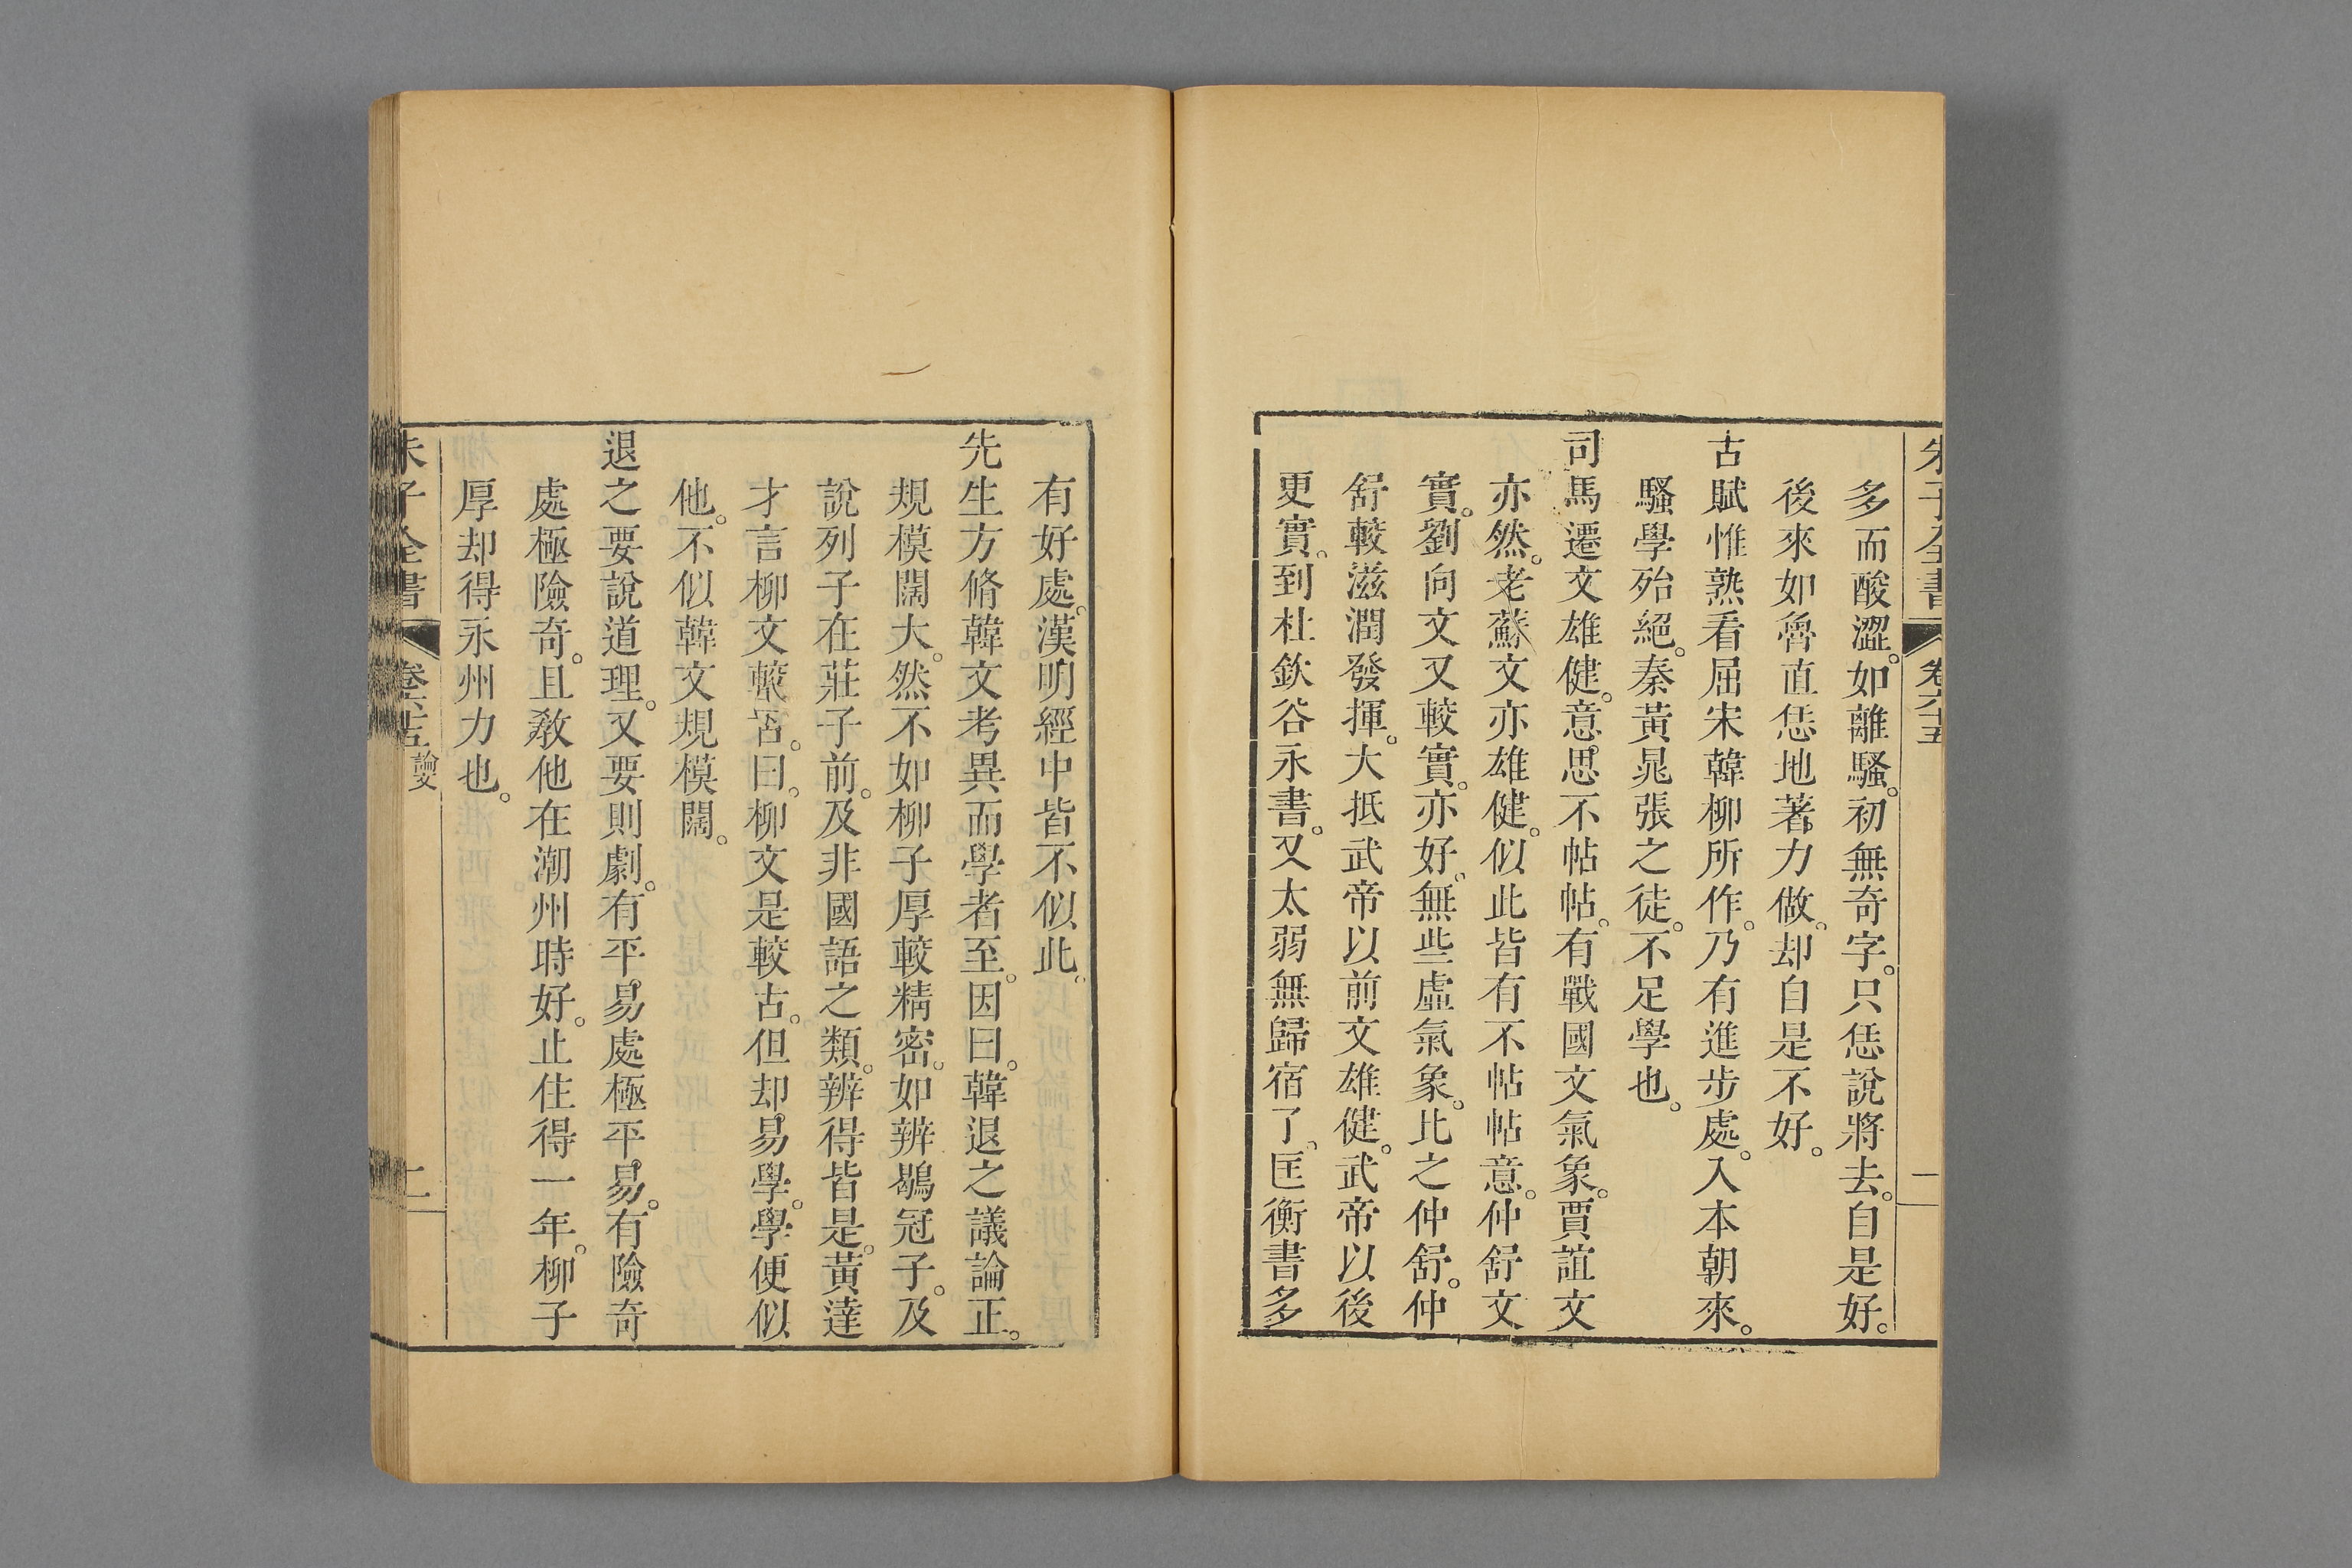 朱子全書 卷六十五
多而酸澀。如離騷。初無奇字。只恁說將去。自是好。
後來如魯直恁地著力做。却自是不好。
古賦惟熟看屈宋韓柳所作。乃有進步處。入本朝來。
騷學殆絕。秦黃晁張之徒。不足學也。
司馬遷文雄健。意思不帖帖。有戰國文氣象。賈誼文
亦然。老蘇文亦雄健。似此皆有不帖帖意。仲舒文
實。劉向文又較實。亦好。無些虛氣象。比之仲舒。仲
舒較滋潤發揮。大抵武帝以前文雄健。武帝以後
更實。到杜欽谷永書。又太弱無歸宿了。匡衡書多
有好處。漢明經中皆不似此。
先生方脩韓文考異而學者至。因曰。韓退之議論正。
規模闊大。然不如柳子厚較精密。如辨鶡冠子。及
說列子在莊子前。及非國語之類。辨得皆是。黃達
才言柳文較古。曰。柳文是較古。但却易學。學便似
他。不似韓文規模闊。
退之要說道理。又要則劇。有平易處極平易。有險奇
處極險奇。且敎他在潮州時好。止住得一年。柳子
厚却得永州力也。
朱子全書 卷六十五 論文 二